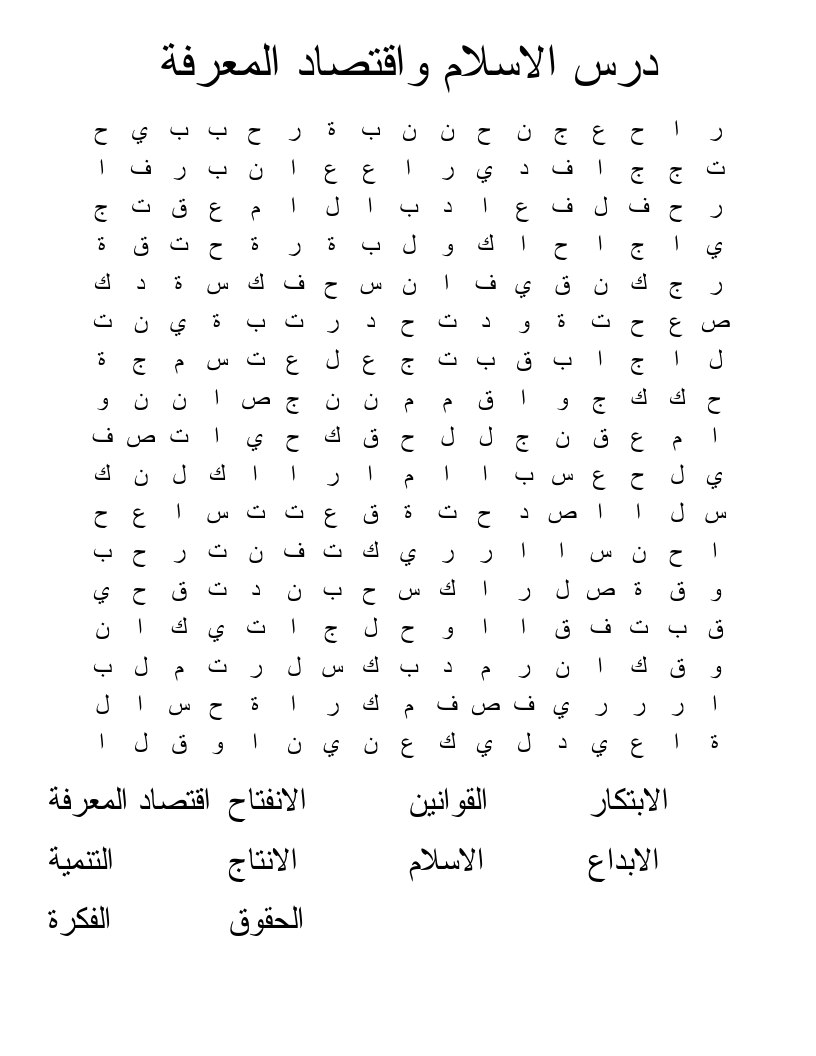 درس الاسلام واقتصاد المعرفة
ر ا ح ع ج ن ح ن ن ب ة ر ح ب ب ي ح
ت ج ج ا ف د ي ر ا ع ع ا ن ب ر ف ا
ر ح ف ل ف ع ا د ب ا ل ا م ع ق ت ج
ي ا ج ا ح ا ك و ل ب ة ر ة ح ت ق ة
ر ج ك ن ق ي ف ا ن س ح ف ك س ة د ك
ص ع ح ت ة و د ت ح د ر ت ب ة ي ن ت
ل ا ج ا ب ق ب ت ج ع ل ع ت س م ج ة
ح ك ك ج و ا ق م م ن ن ج ص ا ن ن و
ا م ع ق ن ج ل ل ح ق ك ح ي ا ت ص ف
ي ل ح ع س ب ا ا م ا ر ا ا ك ل ن ك
س ل ا ا ص د ح ت ة ق ع ت ت س ا ع ح
ا ح ن س ا ا ر ر ي ك ت ف ن ت ر ح ب
و ق ة ص ل ر ا ك س ح ب ن د ت ق ح ي
ق ب ت ف ق ا ا و ح ل ج ا ت ي ك ا ن
و ق ك ا ن ر م د ب ك س ل ر ت م ل ب
ا ر ر ر ي ف ص ف م ك ر ا ة ح س ا ل
ة ا ع ي د ل ي ك ع ن ي ن ا و ق ل ا
الابتكار القوانين الانفتاح اقتصاد المعرفة
الابداع الاسلام الانتاج التنمية
الحقوق الفكرة